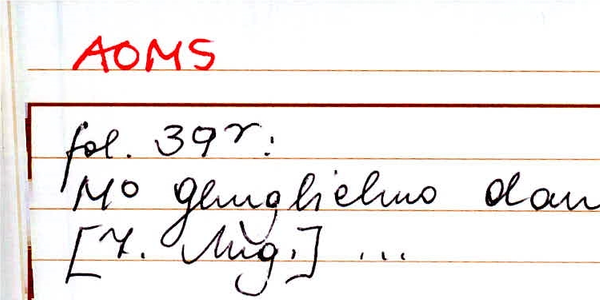 AOMS
fol. 39r:
Mo Gluuglielmo dan
[7. Aug.] ...